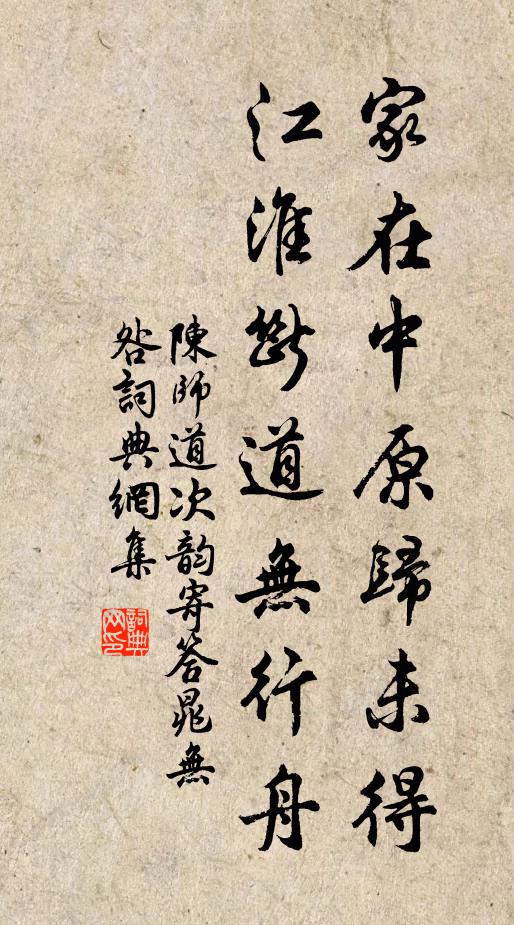 家在中原歸未得
江淮斷道無行舟
陳師道次韵寄答晁無
咎詞典網集
詞典
网印